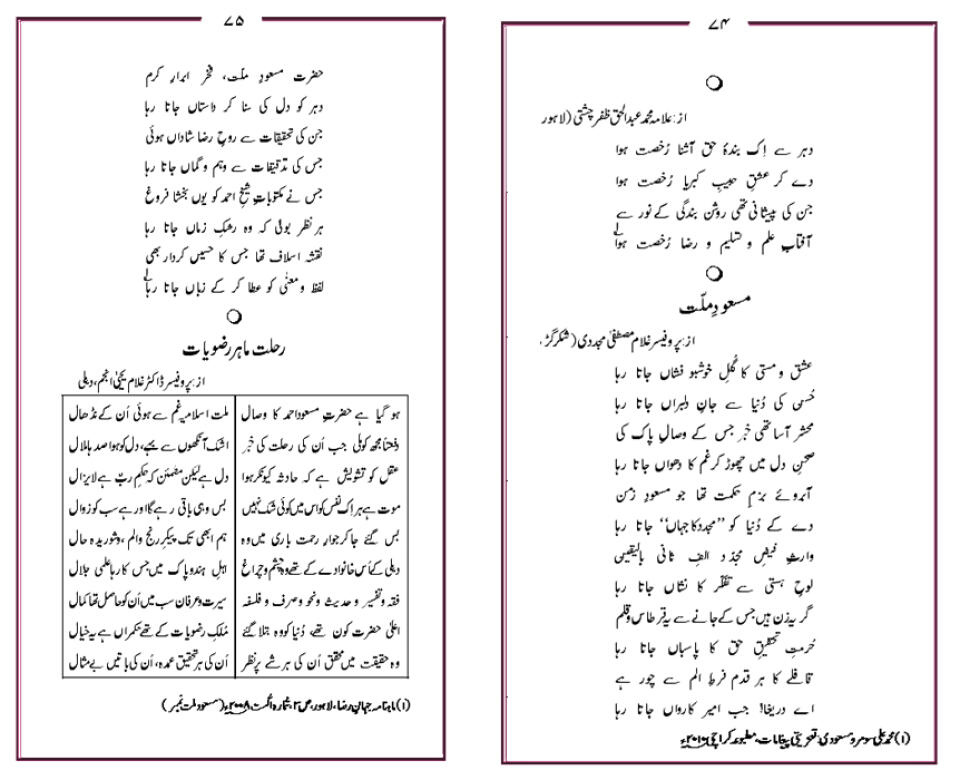 ۷۴
از: علامہ محمد عبدالحق ظفر چشتی (لاہور
دہر سے اِک بندۂ حق آشنا رُخصت ہوا
دے کر عشقِ حبیبِ کبریا رُخصت ہوا
جن کی پیشانی تھی روشن بندگی کے نور سے
آفتابِ علم و تسلیم و رضا رُخصت ہوا ۱
مسعودِ ملّت
از: پروفیسر غلام مصطفیٰ مجددی (شکرگڑ
عشق و مستی کا گُلِ خوشبو فشاں جاتا رہا
حُسن کی دُنیا سے جانِ دلبراں جاتا رہا
محشر آسا تھی خبر جس کے وصالِ پاک کی
صحنِ دل میں چھوڑ کر غم کا دھواں جاتا رہا
آبروئے بزمِ حکمت تھا جو مسعودِ زمن
دے کے دُنیا کو ”مجدد کا جہاں“ جاتا رہا
وارثِ فیضِ مجدّد الفِ ثانی بالیقیں
لوحِ ہستی سے تفکّر کا نشاں جاتا رہا
گریہ زن ہیں جس کے جانے سے یہ قرطاس و قلم
حُرمتِ تحقیقِ حق کا پاسباں جاتا رہا
قافلے کا ہر قدم فرطِ الم سے چور ہے
اے دریغا! جب امیرِ کارواں جاتا رہا
(۱) محمد علی سومرو مسعودی، تعزیتی پیغامات، مطبوعہ کراچی ۲۰۱۶ء
۷۵
حضرت مسعودِ ملّت، فخرِ ابرارِ کرم
دہر کو دل کی سنا کر داستاں جاتا رہا
جن کی تحقیقات سے روحِ رضا شاداں ہوئی
جس کی تدقیقات سے وہم و گماں جاتا رہا
جس نے مکتوباتِ شیخ احمد کو یوں بخشا فروغ
ہر نظر بولی کہ وہ رشکِ زماں جاتا رہا
نقشۂ اسلاف تھا جس کا حسیں کردار بھی
لفظ و معنٰی کو عطا کر کے زباں جاتا رہا ۱
رحلت ماہر رضویات
از: پروفیسر ڈاکٹر غلام یحیٰی انجم، دہلی
ہو گیا ہے حضرتِ مسعود احمد کا وصال ملت اسلامیہ غم سے ہوئی اُن کے نڈھال
دفعتاً مجھ کو ملی جب اُن کی رحلت کی خبر اشک آنکھوں سے بہے، دل کو ہوا صدہا ملال
عقل کو تشویش ہے کہ حادثہ کیونکر ہوا دل ہے لیکن مطمئن کہ حکمِ ربّ ہے لایزال
موت ہے ہر اِک نفس کو اس میں کوئی شک نہیں بس وہی باقی رہے گا اور ہے سب کو زوال
بس گئے جا کر جوارِ رحمتِ باری میں وہ ہم ابھی تک پیکرِ رنج و الم، و شوریدہ حال
دہلی کے اُس خانوادے کے تھے وہ چشم و چراغ اہلِ ہند و پاک میں جس کا رہا علمی جلال
فقہ و تفسیر و حدیث و نحو و صرف و فلسفہ سیرت و عرفان سب میں اُن کو حاصل تھا کمال
اعلیٰ حضرت کون تھے، دُنیا کو وہ بتلا گئے مُلکِ رضویات کے تھے حکمراں ہے یہ خیال
وہ حقیقت میں محقق اُن کی ہر شے پر نظر اُن کی ہر تحقیق عمدہ، اُن کی باتیں بے مثال
(۱) ماہنامہ جہانِ رضا، لاہور، ص ۲، شمارہ اگست، ۲۰۰۸ء (مسعود ملت نمبر)